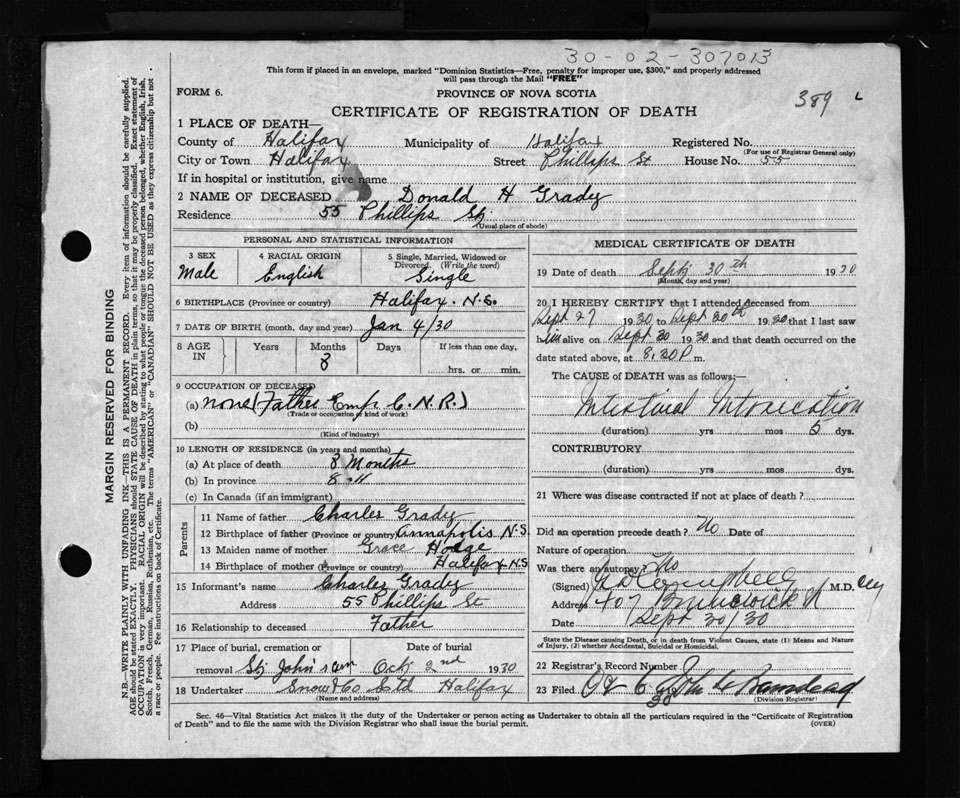 30-02-307013
This form if placed in an envelope, marked "Dominion Statistics—Free, penalty for improper use, $300," and properly addressed
will pass through the Mail "FREE"
389
FORM 6.
PROVINCE OF NOVA SCOTIA
CERTIFICATE OF REGISTRATION OF DEATH
1 PLACE OF DEATH—
County of Halifax Municipality of Halifax Registered No.
(For use of Registrar General only)
City or Town Halifax Street Phillips St House No. 55
If in hospital or institution, give name
2 NAME OF DECEASED Donald H Grady
Residence 55 Phillips St
(Usual place of abode)
PERSONAL AND STATISTICAL INFORMATION
3 SEX
Male
4 RACIAL ORIGIN
English
5 Single, Married, Widowed or
Divorced. (Write the word)
Single
6 BIRTHPLACE (Province or country) Halifax. N.S.
7 DATE OF BIRTH (month, day and year) Jan 4/30
8 AGE IN Years Months Days If less than one day,
8 hrs. or min.
9 OCCUPATION OF DECEASED
(a) none (Father Emp C.N.R.)
(Trade or occupation or kind of work)
(b)
(Kind of industry)
10 LENGTH OF RESIDENCE (in years and months)
(a) At place of death 8 Months
(b) In province 8 "
(c) In Canada (if an immigrant)
Parents
11 Name of father Charles Grady
12 Birthplace of father (Province or country) Annapolis N.S.
13 Maiden name of mother Grace Hodge
14 Birthplace of mother (Province or country) Halifax N.S
15 Informant's name Charles Grady
Address 55 Phillips St
16 Relationship to deceased Father
17 Place of burial, cremation or Date of burial
removal St John's cem Oct 2nd 1930
18 Undertaker Snow & Co Ltd Halifax
(Name and address)
MEDICAL CERTIFICATE OF DEATH
19 Date of death Sept 30th 1930
(Month, day and year)
20 I HEREBY CERTIFY that I attended deceased from
Sept 27 1930 to Sept 30th 1930 that I last saw
him alive on Sept 30 1930 and that death occurred on the
date stated above, at 8.30 P m.
The CAUSE of DEATH was as follows:—
Intestinal Intoxication
(duration) yrs mos 5 dys.
CONTRIBUTORY
(duration) yrs mos dys.
21 Where was disease contracted if not at place of death?
Did an operation precede death? No Date of
Nature of operation
Was there an autopsy? No
(Signed) Campbell M.D.
Address 407 Brunswick St
Date Sept 30/30
State the Disease causing Death, or in death from Violent Causes, state (1) Means and Nature
of Injury, (2) whether Accidental, Suicidal or Homicidal.
22 Registrar's Record Number
23 Filed Oct 6 30
(Division Registrar)
Sec. 46—Vital Statistics Act makes it the duty of the Undertaker or person acting as Undertaker to obtain all the particulars required in the "Certificate of Registration
of Death" and to file the same with the Division Registrar who shall issue the burial permit. (OVER)
MARGIN RESERVED FOR BINDING
N.B.—WRITE PLAINLY WITH UNFADING INK—THIS IS A PERMANENT RECORD. Every item of information should be carefully supplied.
AGE should be stated EXACTLY. PHYSICIANS should STATE CAUSE OF DEATH in plain terms, so that it may be properly classified. Exact statement of
OCCUPATION is very important. RACIAL ORIGIN will be described by stating to what people or tongue the deceased person belonged, whether English, Irish,
Scotch, French, German, Russian, Ruthenian, etc. The terms "AMERICAN" or "CANADIAN" SHOULD NOT BE USED as they express citizenship but not
a race or people. Fee instructions on back of Certificate.